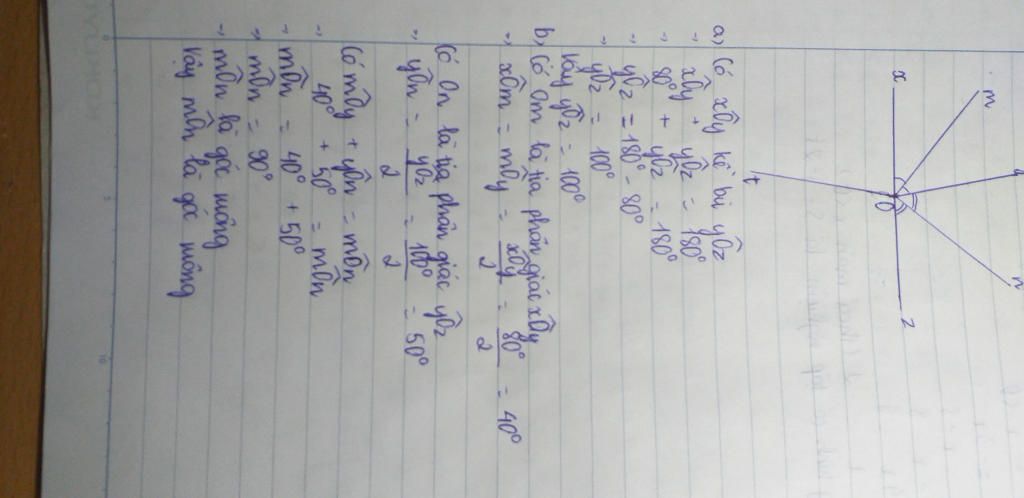 x
m
y
n
z
t
O
a) Có xÔy kề bù yÔz
→ xÔy + yÔz = 180°
→ 80° + yÔz = 180°
→ yÔz = 180° - 80°
→ yÔz = 100°
Vậy yÔz = 100°
b) Có Om là tia phân giác xÔy
→ xÔm = mÔy = xÔy/2 = 80°/2 = 40°
Có On là tia phân giác yÔz
→ yÔn = yÔz/2 = 100°/2 = 50°
Có mÔy + yÔn = mÔn
→ 40° + 50° = mÔn
→ mÔn = 40° + 50°
→ mÔn = 90°
→ mÔn là góc vuông
Vậy mÔn là góc vuông